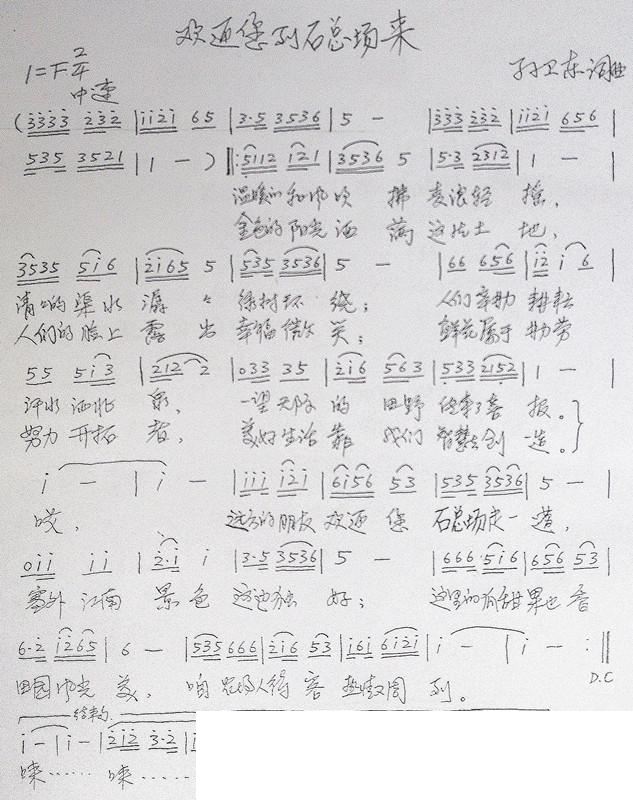 欢迎您到石总场来
1=F 2/4
中速
孙卫东词曲
(3333 232 | 1121 65 | 3·5 3536 | 5 — | 333 232 | 1121 656 |
535 3521 | 1 — ) ‖: 5112 121 | 3536 5 | 5·3 2312 | 1 — |
温暖的和风吹 拂 麦浪轻 摇,
金色的阳光洒 满 这片土 地,
3535 516 | 2165 5 | 535 3536 | 5 — | 66 656 | 12 1 6 |
清清的渠水 潺 々 绿树环 绕; 人们辛勤 耕耘
人们的脸上 露 出 幸福微 笑; 鲜花属于 勤劳
55 513 | 212 2 | 033 35 | 216 563 | 533 2152 | 1 — |
汗水 洒 一望无际 的 田野 传来了喜 报。
努力 开拓 者, 美好生活 靠 我们 智慧去创 造。
1 — | 1 — | 111 121 | 6156 53 | 535 3536 | 5 — |
哎, 远方的朋友 欢迎 您 石总场走一 遭,
011 11 | 2·1 1 | 3·5 3536 | 5 — | 666 516 | 656 53 |
塞外 江南 景 色 这边独 好; 这里的 甜 果也香
6·2 1265 | 6 — | 535 666 | 216 53 | 161 6121 | 1 — | 1 — :‖
田园风光 美, 咱 农场人待 客 热 周 到。
D.C
结束句
1 — | 1 — | 212 3·2 |
来…… 来……